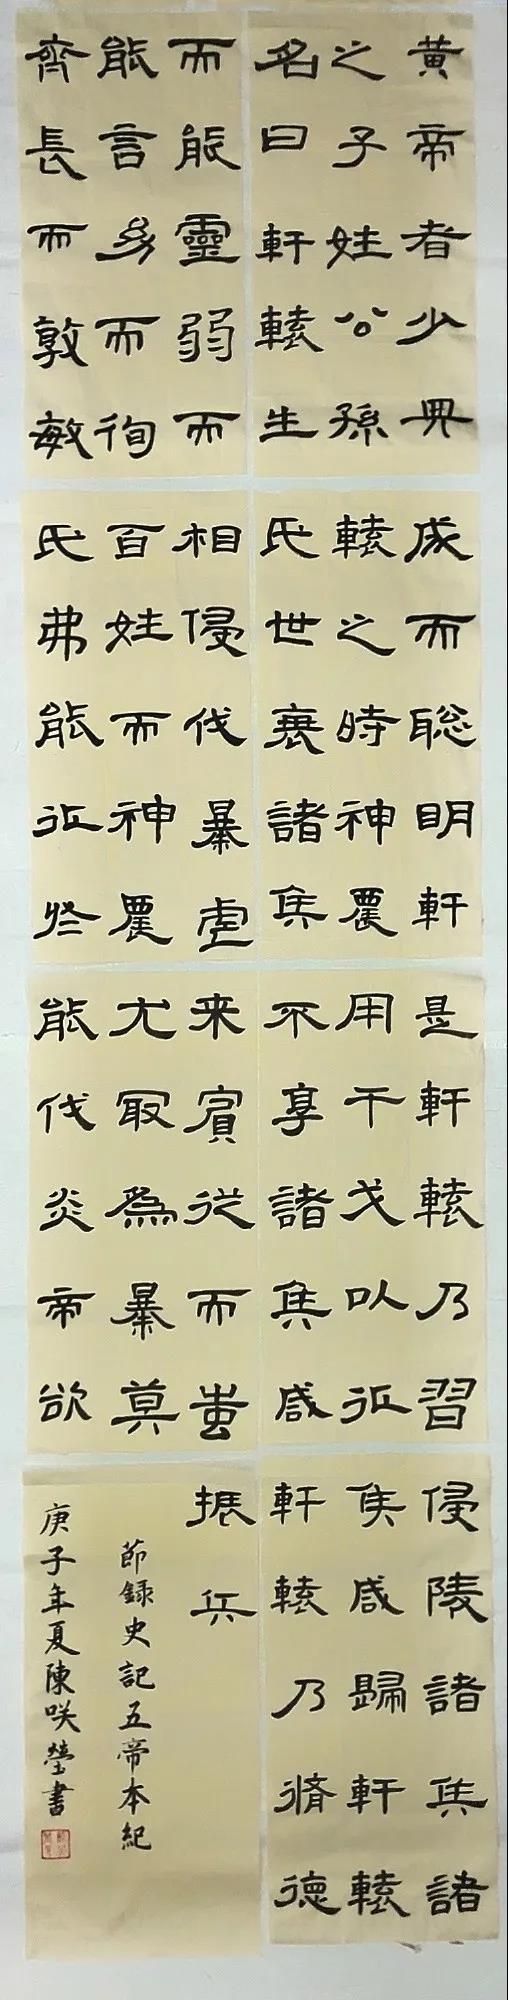 黄帝者少典
之子姓公孫
名曰軒轅生
而能靈弱而
能言幼而徇
齊長而敦敏
成而聡明軒
轅之時神農
氏世衰諸侯
相侵伐暴虐
百姓而神農
氏弗能征於
是軒轅乃習
用干戈以征
不享諸侯咸
来賓從而蚩
尤冣為暴莫
能伐炎帝欲
侵陵諸侯諸
侯咸歸軒轅
軒轅乃脩德
振兵
節録史記五帝本紀
庚子年夏陳咲瑩書